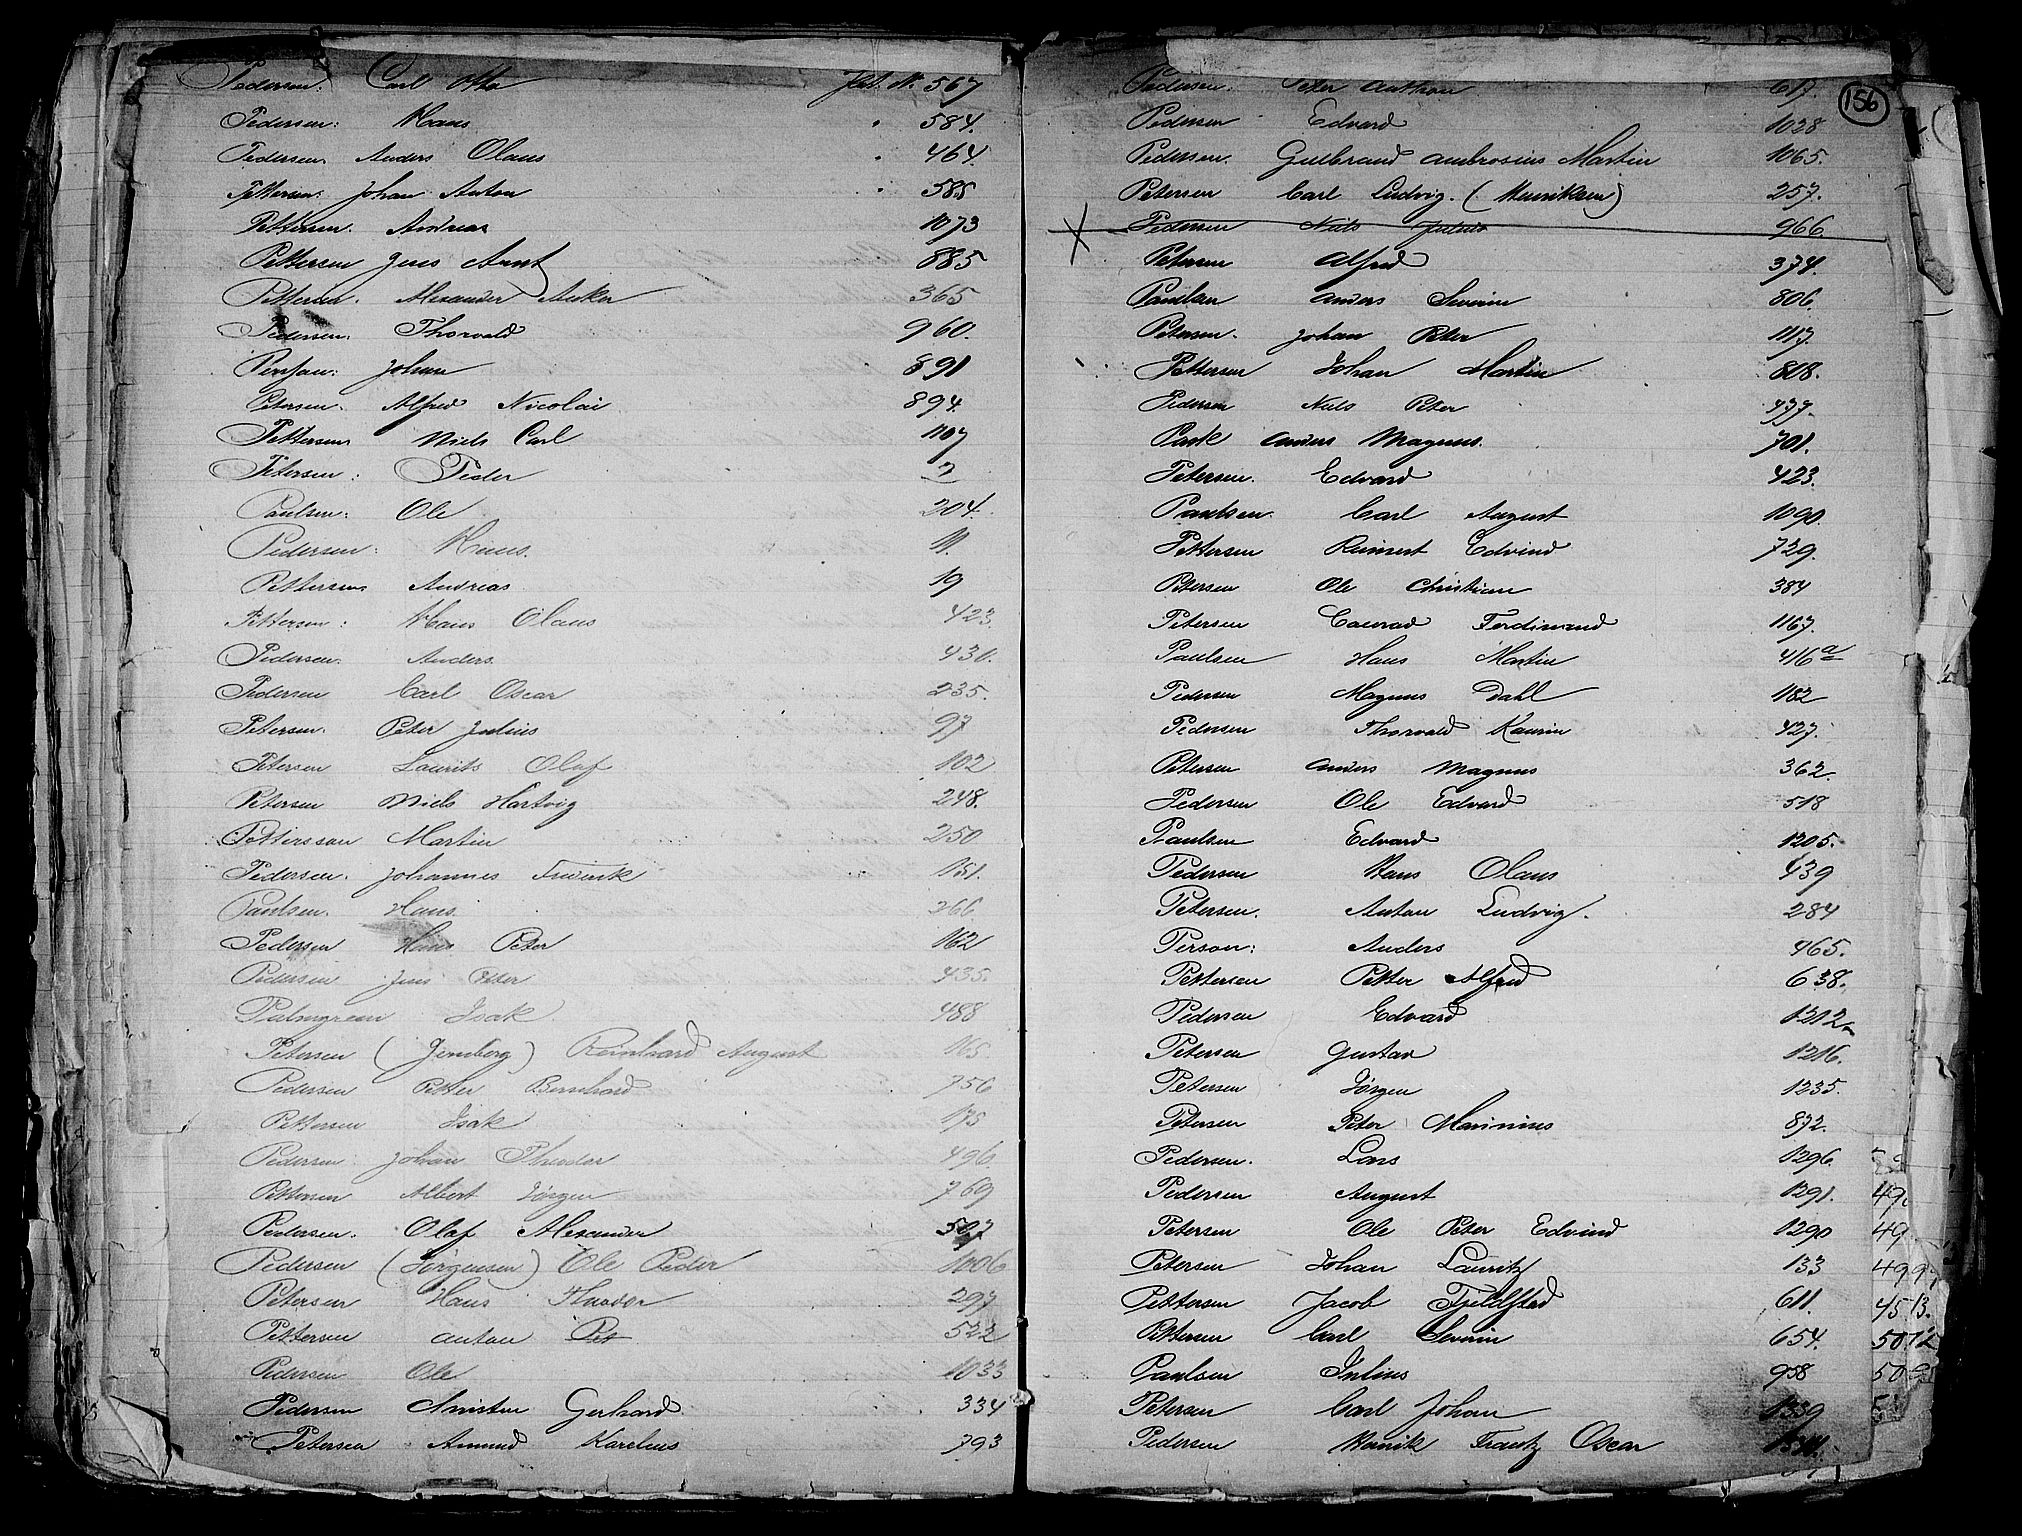 Pedersen. Carl Otto 567
Pedersen: Hans 584.
Pedersen Anders Olaus 464.
Pettersen: Johan Anton 585
Pettersen. Andreas 1073
Pettersen Jens Arnt 885
Pettersen. Alexander Anker 365
Pedersen: Thorvald 960.
Johan 891
Petersen. Alfred Nicolai 894.
Pettersen Niels Carl 1107
Petersen: Peder 2
Paulsen: Ole 204.
Pedersen: Hans. 11.
Pettersen Andreas. 19
Pettersen: Hans Olaus 423.
Pedersen. Anders. 430.
Pedersen Carl Oscar 235.
Petersen. Peter Julius 97
Petersen Laurits Olaf 102
Petersen Niels Hartvig 248.
Pettersson Martin 250
Pedersen. Johannes 151.
Paulsen. Hans. 266
Pedersen Hans Peter 162
Pedersen Jens Peter 435.
Palmgreen Isak 488
Petersen (Jernberg) Reinhard August 165
Pedersen Petter Bernhard 756
Pettersen Isak 175
Pedersen Johan Theodor 496.
Pettersen Albert Jørgen 769
Pedersen. Olaf Alexander 507
Pedersen (Jørgensen) Ole Peder 1006
Petersen Hans Theodor 297
Pettersen Anton Pet 522
Pedersen Ole 1033
Pedersen Gerhard. 334
Petersen Amund Karelius 793
156
Pedersen. Peter Anthon 617.
Pedersen Edvard 1028
Pedersen. Gulbrand Ambrosius Martin 1065.
Petersen Carl Ludvig. (Henriksen) 257.
X Pedersen Niels Julius 966.
Petersen Alfred 374.
Paulsen Anders Severin 806.
Petersen. Johan Peter 1117.
Pettersen Johan Martin 808.
Pedersen Niels Peter 477.
Anders Magnus. 701.
Petersen. Edvard 423.
Paulsen. Carl August 1090.
Pettersen Reinert Edvind 729.
Pettersen Ole Christian 384
Petersen Conrad Ferdinand 1167.
Paulsen Hans Martin 416 a
Pedersen Magnus Dahl 1182
Pedersen Thorvald Kaurin 427.
Petersen Anders Magnus 362.
Pedersen Ole Edvard 518
Paulsen Edvard 1205.
Pedersen Hans Olaus 439
Petersen. Anton Ludvig. 284
Person: Anders 465.
Pettersen Petter Alfred 638.
Pedersen Edvard 1212
Petersen Gustav 1216.
Petersen Jørgen 1235.
Petersen Peter Marinius 872.
Pedersen. Lars 1296.
Pedersen August 1291. 49.
Petersen Ole Peter Edvind 1290 49
Petersen Johan Lauritz 133 499
Pettersen Jacob Fjeldsted 611. 4513.
Pettersen Carl Severin 654. 5012
Paulsen Julius 958 50
Petersen Carl Johan 1339
Pedersen Henrik Frantz Oscar